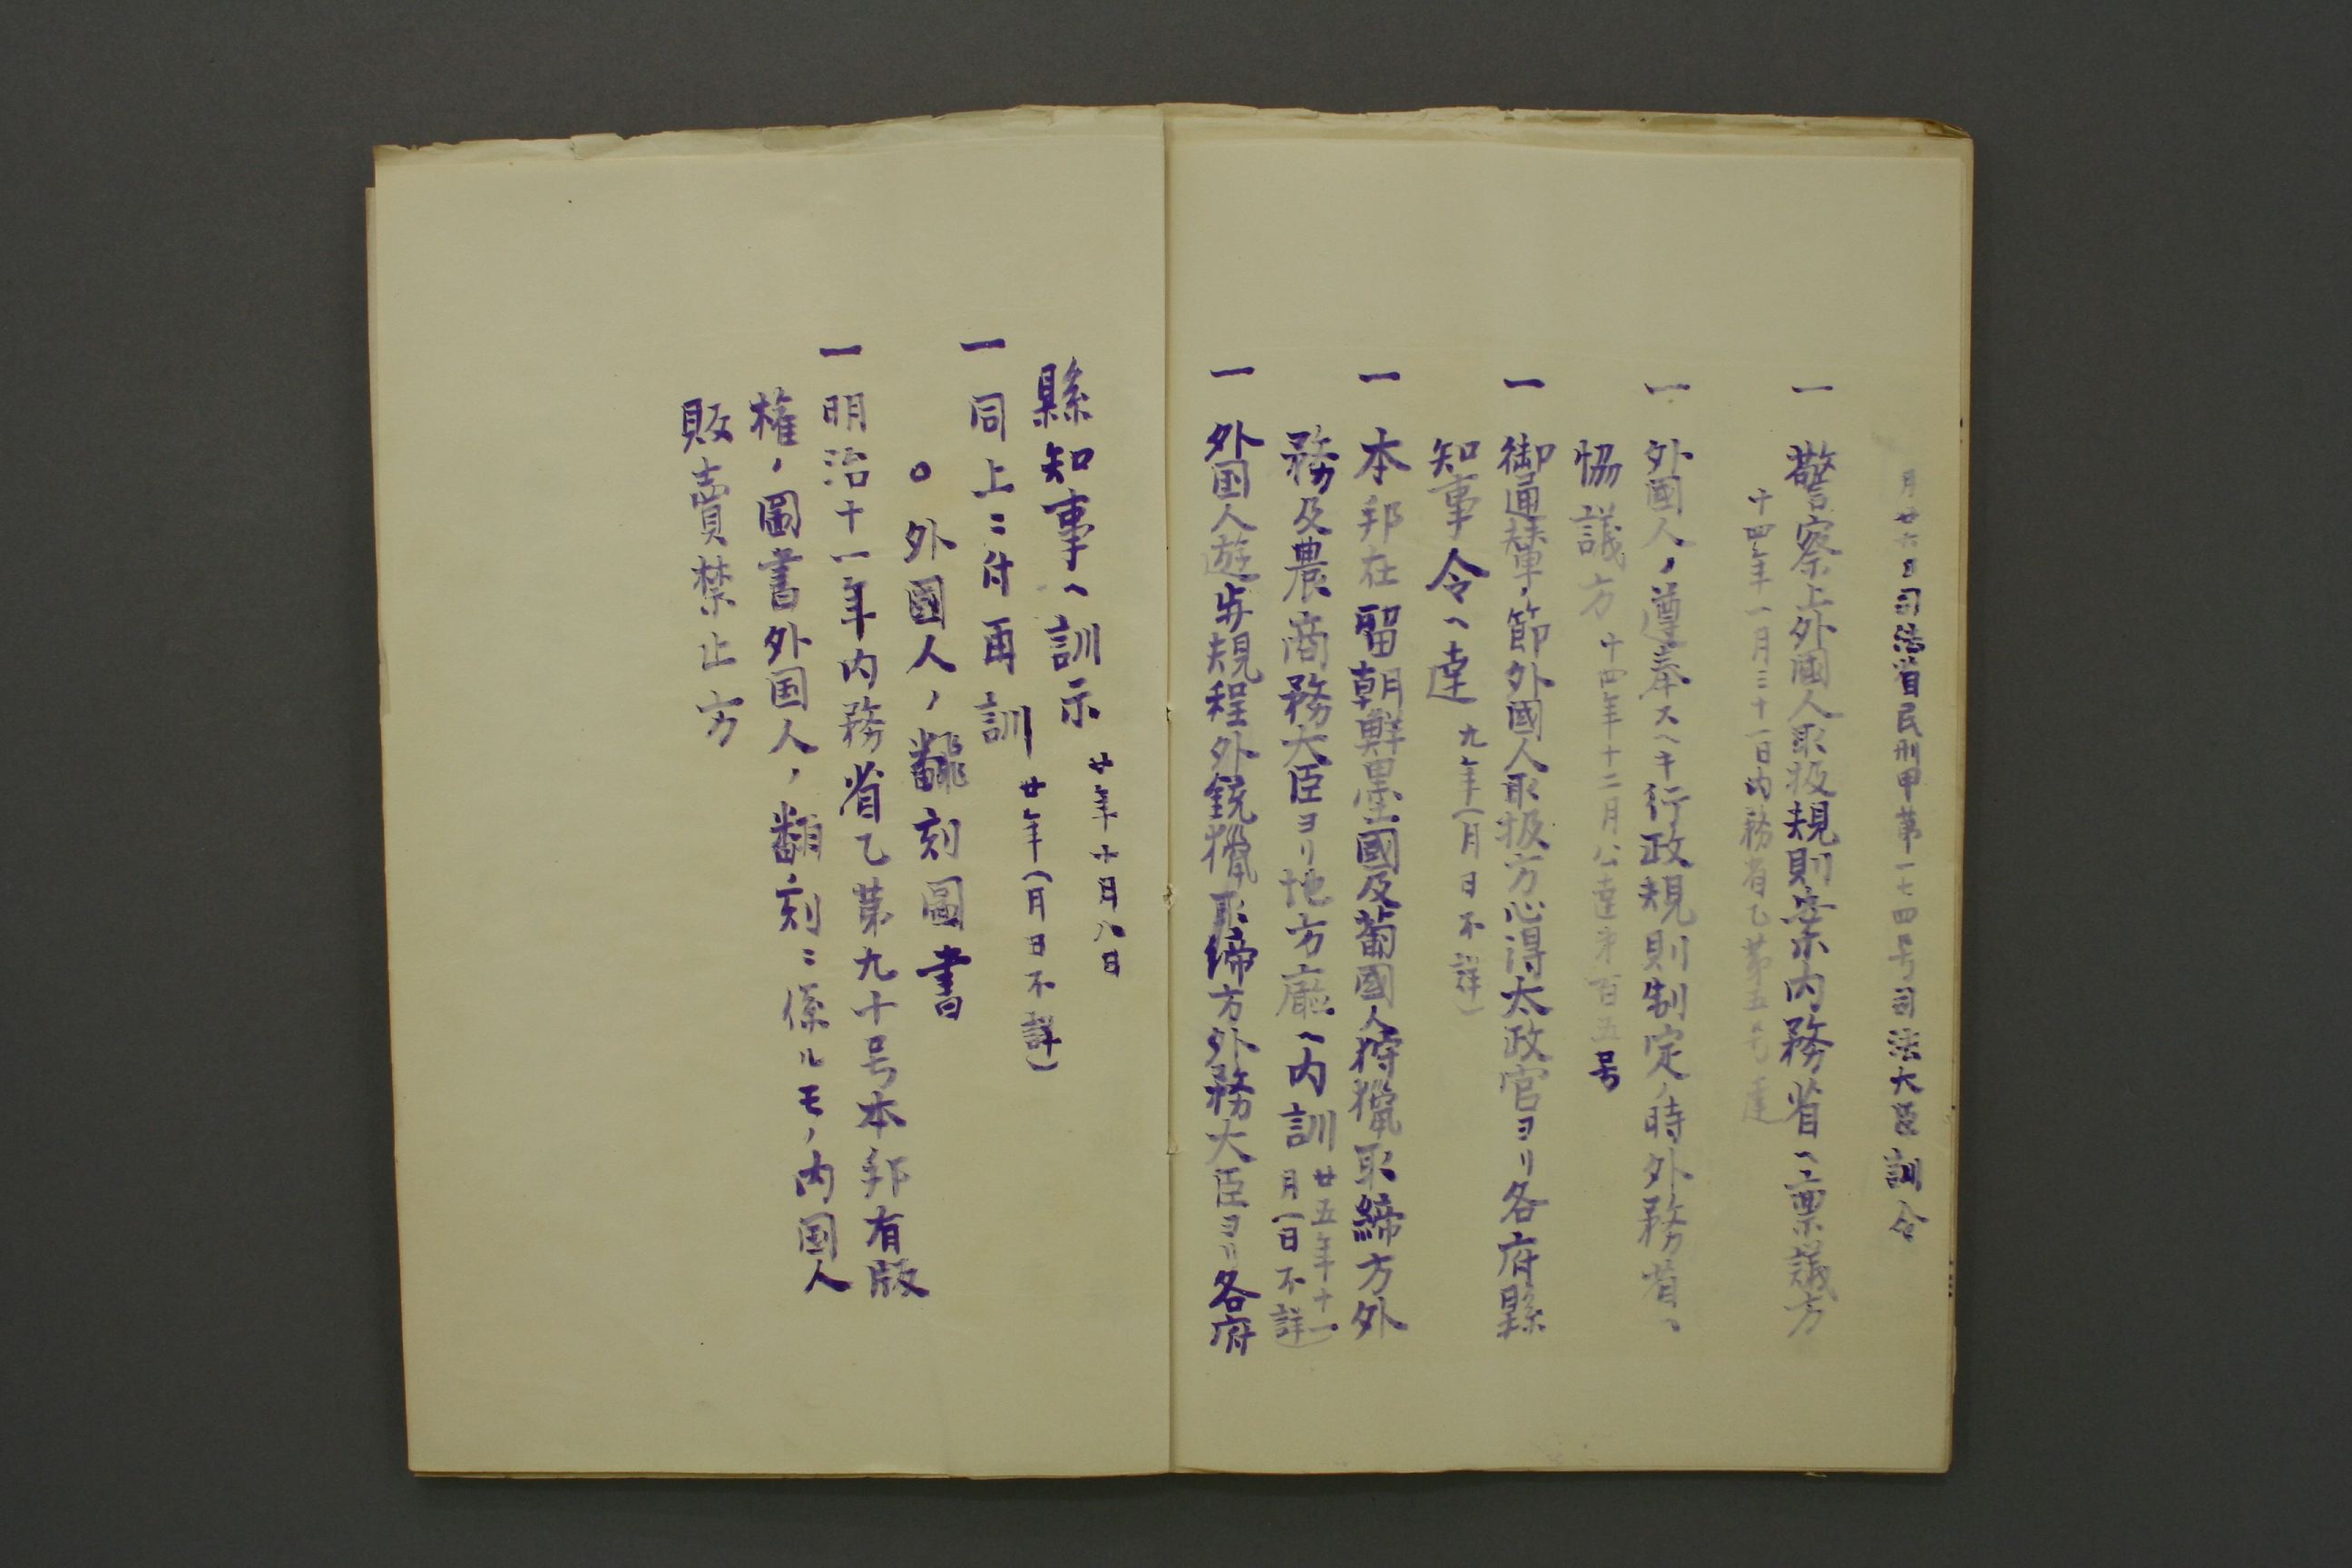 月廿六日司法省民刑甲第一七四号司法大臣訓令
一 警察上外國人取扱規則案内務省ヘ稟議方
十四年一月三十一日内務省乙第五号達
一 外國人ノ遵奉スヘキ行政規則制定ノ時外務省ヘ
協議方 十四年十二月公達第百五号
一 御通輦ノ節外國人取扱方心得太政官ヨリ各府縣
知事令ヘ達 九年(月日不詳)
一 本邦在留朝鮮墨國及葡國人狩獵取締方外
務及農商務大臣ヨリ地方廳ヘ内訓 廿五年十一
月(日不詳)
一 外国人遊歩規程外銃獵取締方外務大臣ヨリ各府
縣知事ヘ訓示 廿年十月八日
一 同上ニ付再訓 廿年(月日不詳)
○外國人ノ飜刻圖書
一 明治十一年内務省乙第九十号本邦有版
権ノ圖書外国人ノ翻刻ニ係ルモノ内國人
販賣禁止方